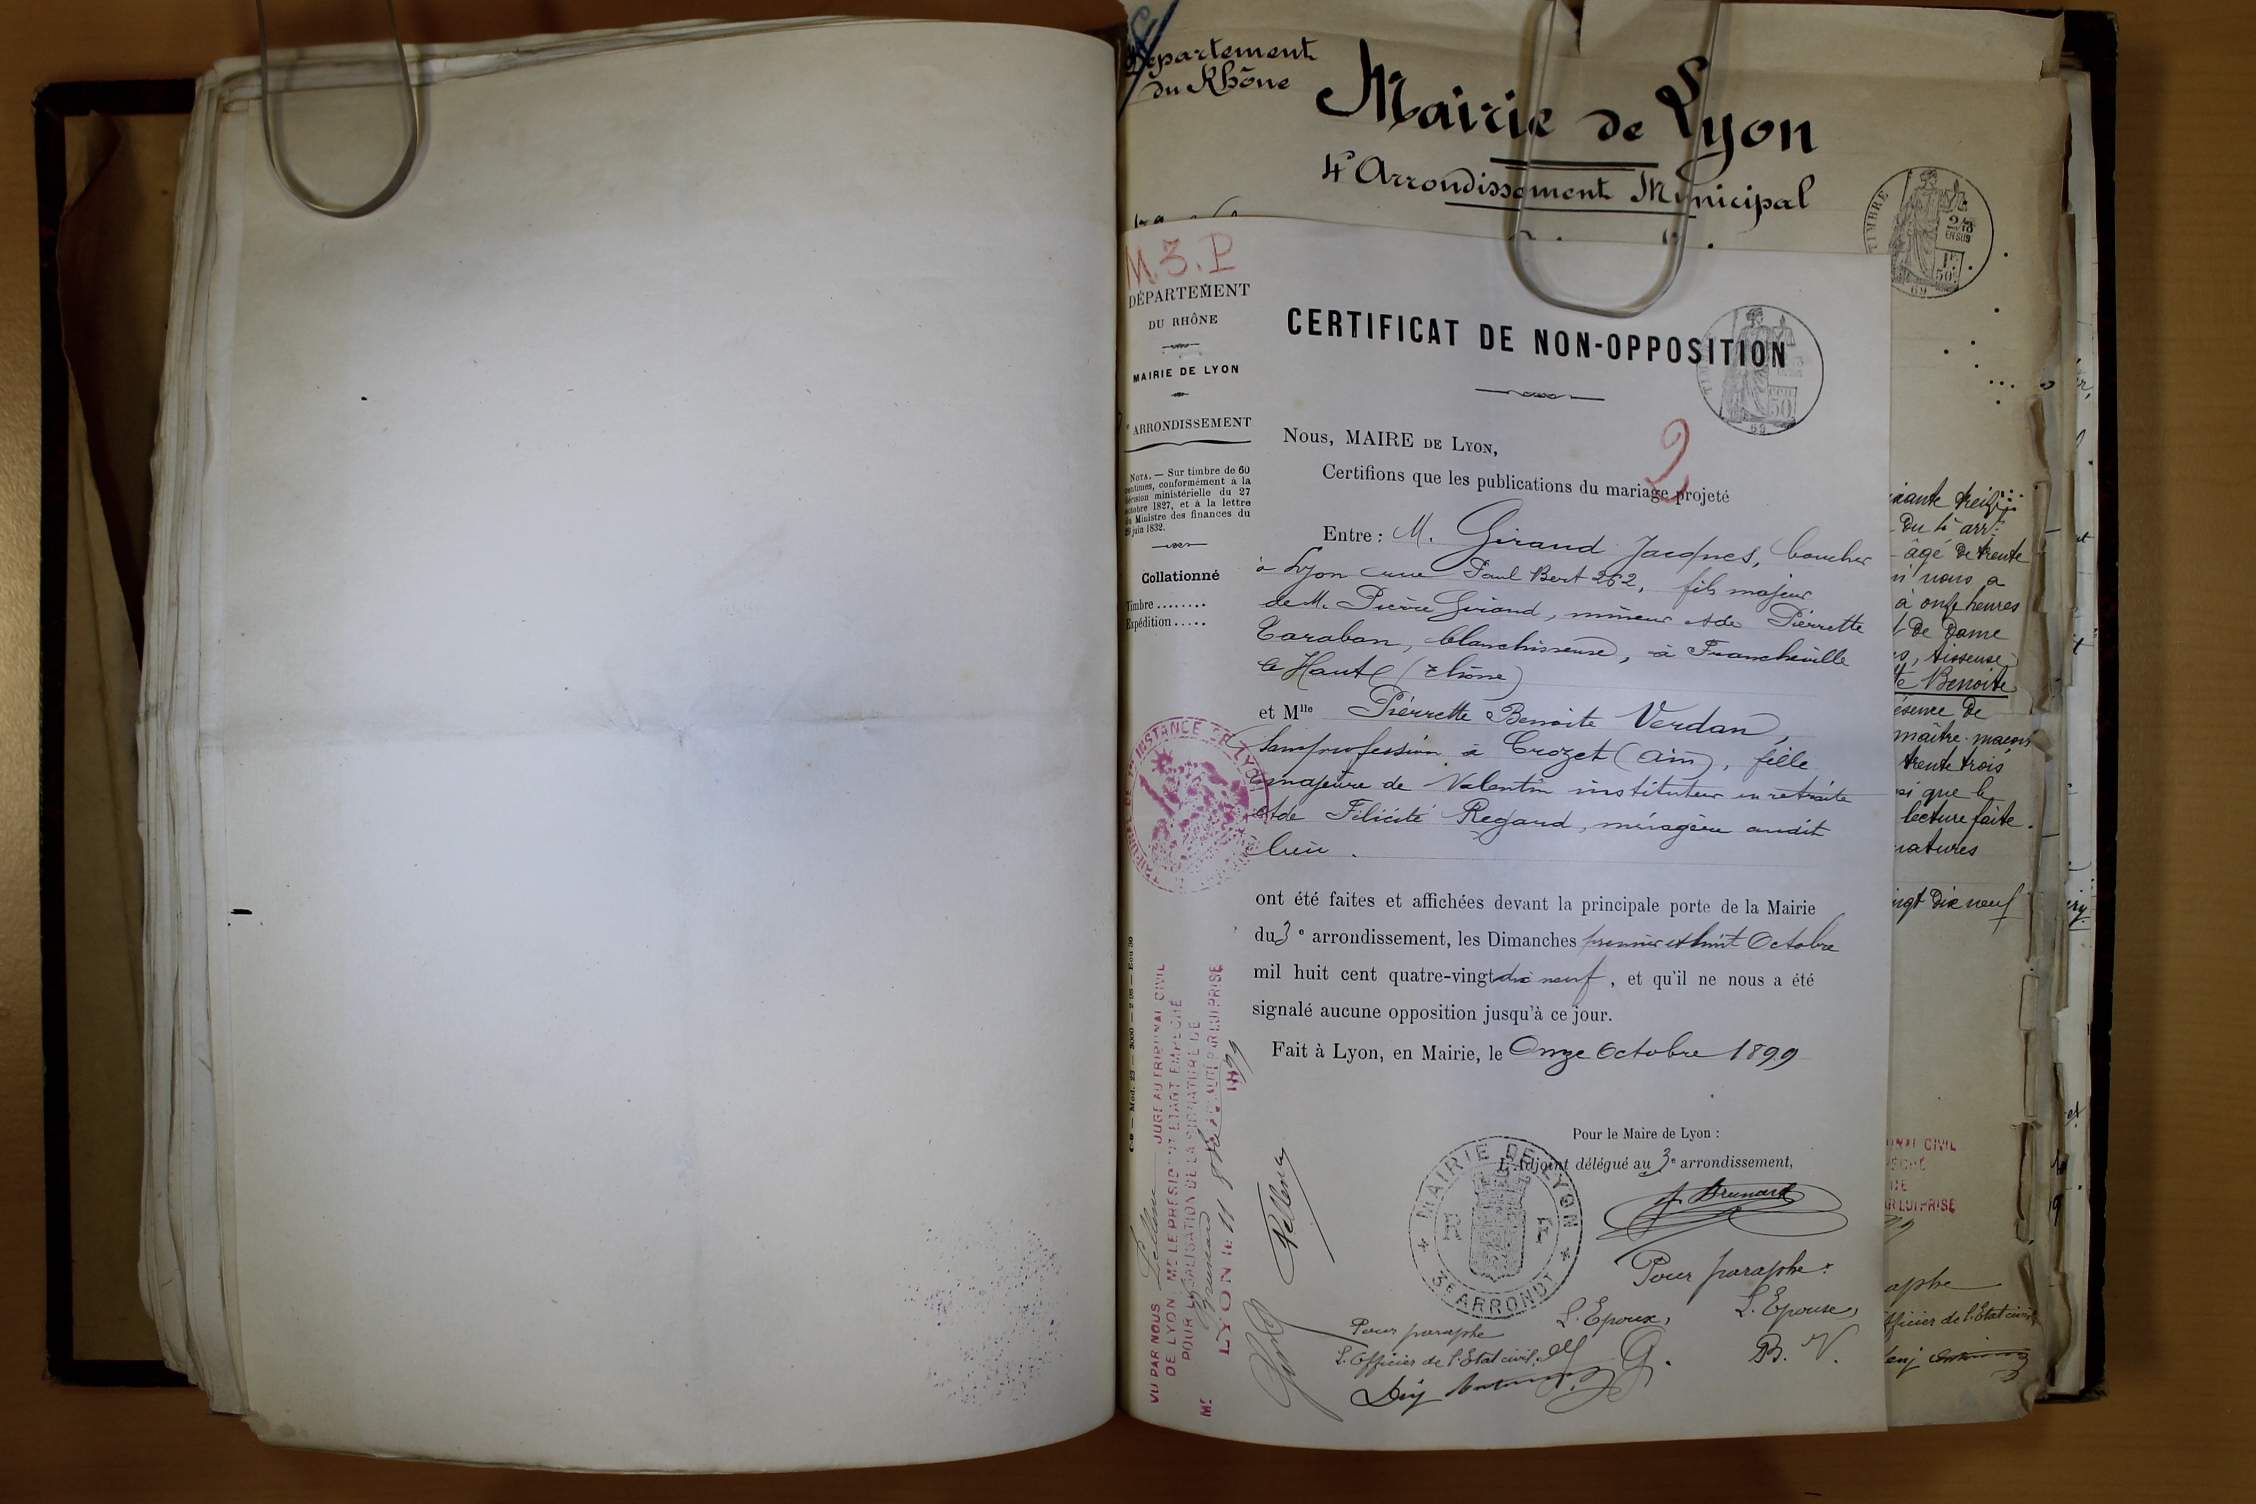 Département
du Rhône
Mairie de Lyon
4e Arrondissement Municipal
TIMBRE
2/10
EN SUS
1F
50c
69
M. 3. P
DÉPARTEMENT
DU RHÔNE
MAIRIE DE LYON
e ARRONDISSEMENT
NOTA. — Sur timbre de 60
centimes, conformément à la
décision ministérielle du 27
octobre 1827, et à la lettre
du Ministre des finances du
juin 1832.
Collationné
Timbre ........
Expédition .....
CERTIFICAT DE NON-OPPOSITION
50
69
2
Nous, MAIRE DE LYON,
Certifions que les publications du mariage projeté
Entre : M. Giraud Jacques, boucher
à Lyon rue Paul Bert 262, fils majeur
de M. Pierre Giraud, mineur et de Pierrette
Taraban, blanchisseuse, à Francheville
le Haut (Rhône)
et Mlle Pierrette Benoite Verdan,
sans profession à Crozet (Ain), fille
majeure de Valentin instituteur en retraite
et de Félicité Regard, ménagère audit
lieu.
ont été faites et affichées devant la principale porte de la Mairie
du 3e arrondissement, les Dimanches premier et huit Octobre
mil huit cent quatre-vingt dix neuf, et qu'il ne nous a été
signalé aucune opposition jusqu'à ce jour.
Fait à Lyon, en Mairie, le Onze Octobre 1899
Pour le Maire de Lyon :
L'Adjoint délégué au 3e arrondissement,
MAIRIE DE LYON
3e ARRONDT
Pour paraphe :
L'Epoux,
L'Epouse,
Pour paraphe
L'Officier de l'Etat civil
G.
B. V.
TRIBUNAL DE 1re INSTANCE DE LYON
VU PAR NOUS
JUGE AU TRIBUNAL CIVIL
DE LYON MR LE PRESIDENT ETANT EMPECHÉ
POUR LEGALISATION DE LA SIGNATURE DE
MR
PAR LUI PRISE
LYON le 11 8bre 1899
xante treize
du 4e arrt
âgé de trente
nous a
à onze heures
de Dame
tisseuse
Benoite
ésence de
maître-maçon
trente trois
que le
lecture faite
natures
ingt dix neuf
NAL CIVIL
PAR LUI PRISE
aphe
fficier de l'Etat civil